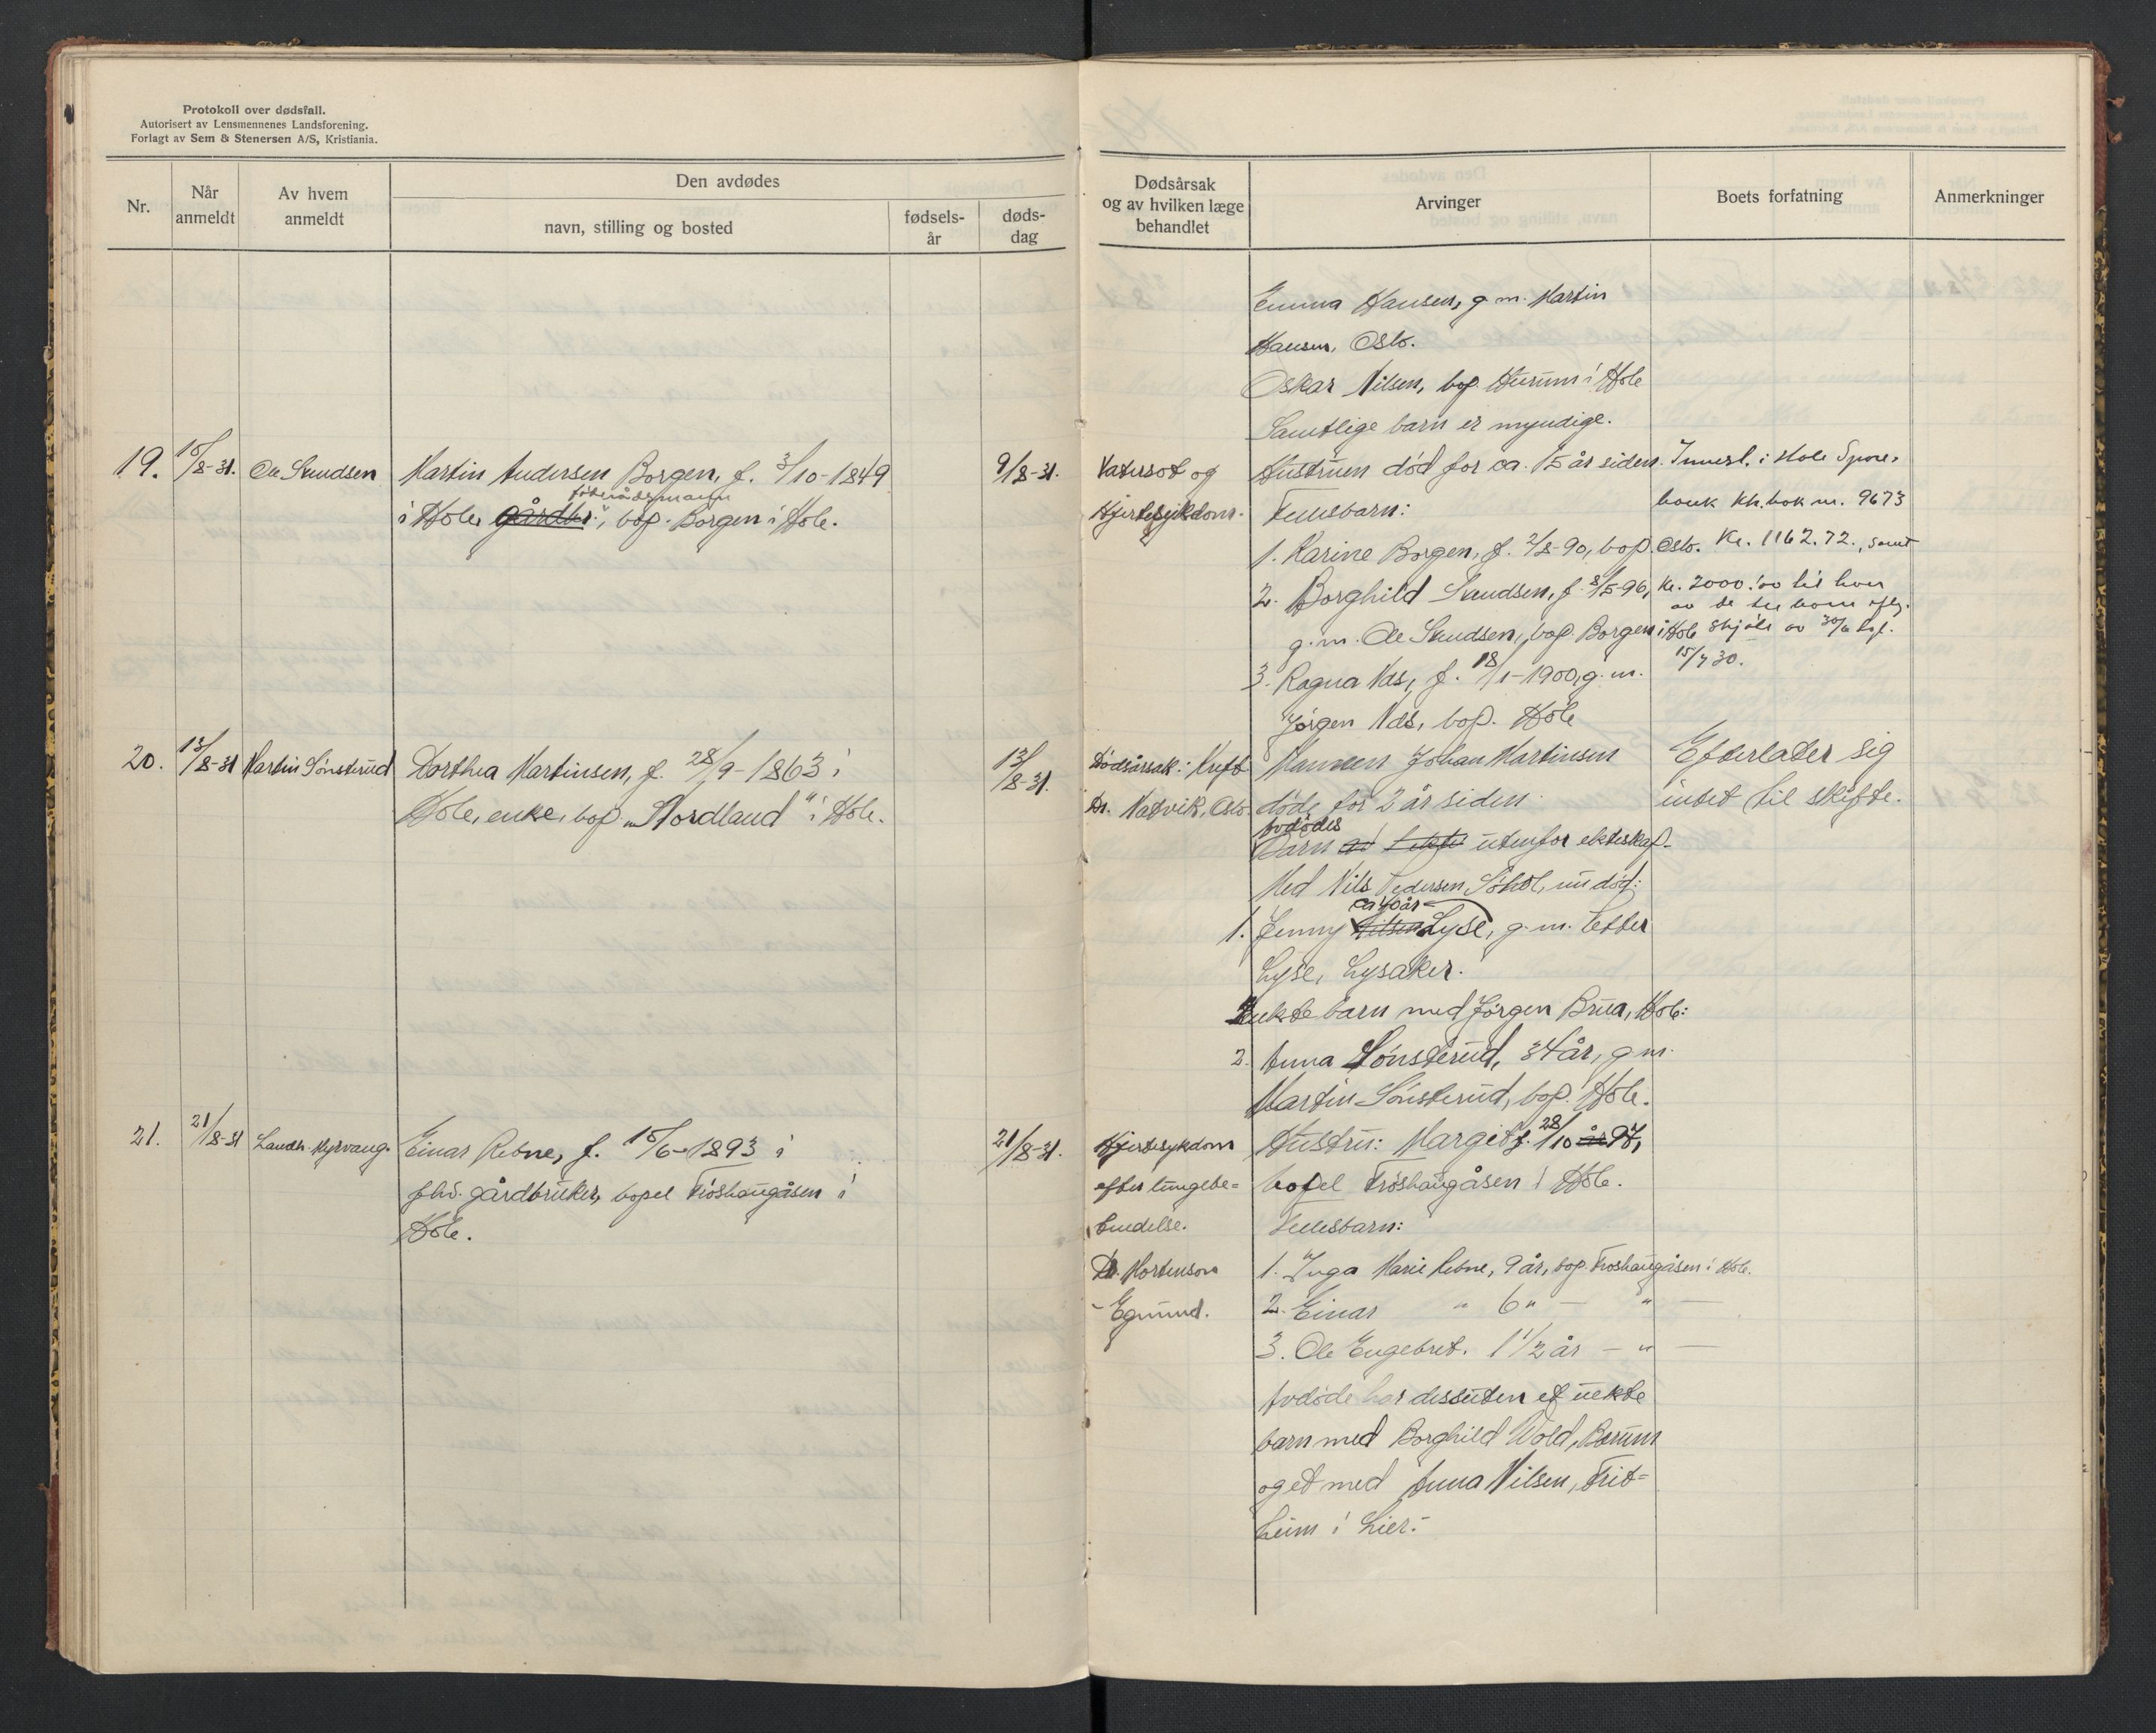 Protokoll over dødsfall.
Autorisert av Lensmennenes Landsforening.
Forlagt av Sem & Stenersen A/S, Kristiania.
Nr.
Når anmeldt
Av hvem anmeldt
Den avdødes
navn, stilling og bosted
fødsels-år
døds-dag
Dødsårsak og av hvilken læge behandlet
Arvinger
Boets forfatning
Anmerkninger
Emma Hansen, g.m. Martin
Hansen, Oslo.
Oskar Nilsen, bop. Hurum i Hole
Samtlige barn er myndige.
19.
15/8-31.
Ole Knudsen
Martin Andersen Borgen, f. 3/10-1849
føderådsmann
i Hole, gårdbr., bop. Borgen i Hole.
9/8-31.
Vatersot og
Hjertesykdom.
Hustruen død for ca. 15 år siden.
Fellesbarn:
1. Karine Borgen, f. 2/8-90, bop. Oslo.
2. Borghild Knudsen, f. 8/5-96,
g.m. Ole Knudsen, bop. Borgen i Hole
3. Ragna Næs, f. 18/1-1900, g.m.
Jørgen Næs, bop. Hole
Innest. i Hole Spare-
bank kh. bok nr. 9673
Kr. 1162.72., samt
kr. 2000.00 til hver
av de tre barn iflg.
skjøte av 30/6 tgl.
15/7 30.
20.
13/8-31
Martin Sønsterud
Dorthea Martinsen, f. 28/9-1863 i
Hole, enke, bop. „Nordland" i Hole.
13/8-31.
Dødsårsak: Kreft
Dr. Natvik, Oslo.
Mannen Johan Martinsen
døde for 2 år siden.
avdødes
Barn utenfor ekteskap.
Med Nils Pedersen Søhol, nu død:
ca 40 år
1. Jenny Nilsen Lyse, g.m. Petter
Lyse, Lysaker.
Uekte barn med Jørgen Brua, Hole:
2. Anna Sønsterud, 34 år, g.m.
Martin Sønsterud, bop. Hole.
Efterlater sig
intet til skifte.
21.
21/8-31
Landh. Myrvang.
Einar Rebne, f. 15/6-1893 i
fhv. gårdbruker, bopel Frøshaugåsen i
Hole.
21/8-31.
Hjertesykdom
efter lungebe=
tendelse.
Dr. Mortenson
- Egnund.
Hustru: Margit f. 28/10 år 97,
bopel Frøshaugåsen i Hole.
Fellesbarn:
1. Inga Marie Rebne, 9 år, bop. Frøshaugåsen i Hole.
2. Einar " 6 " — " —
3. Ole Engebret. 1 1/2 år — " —
Avdøde har dessuten et uekte
barn med Borghild Wold, Bærum
og et med Anna Nilsen, Frit=
heim i Lier.